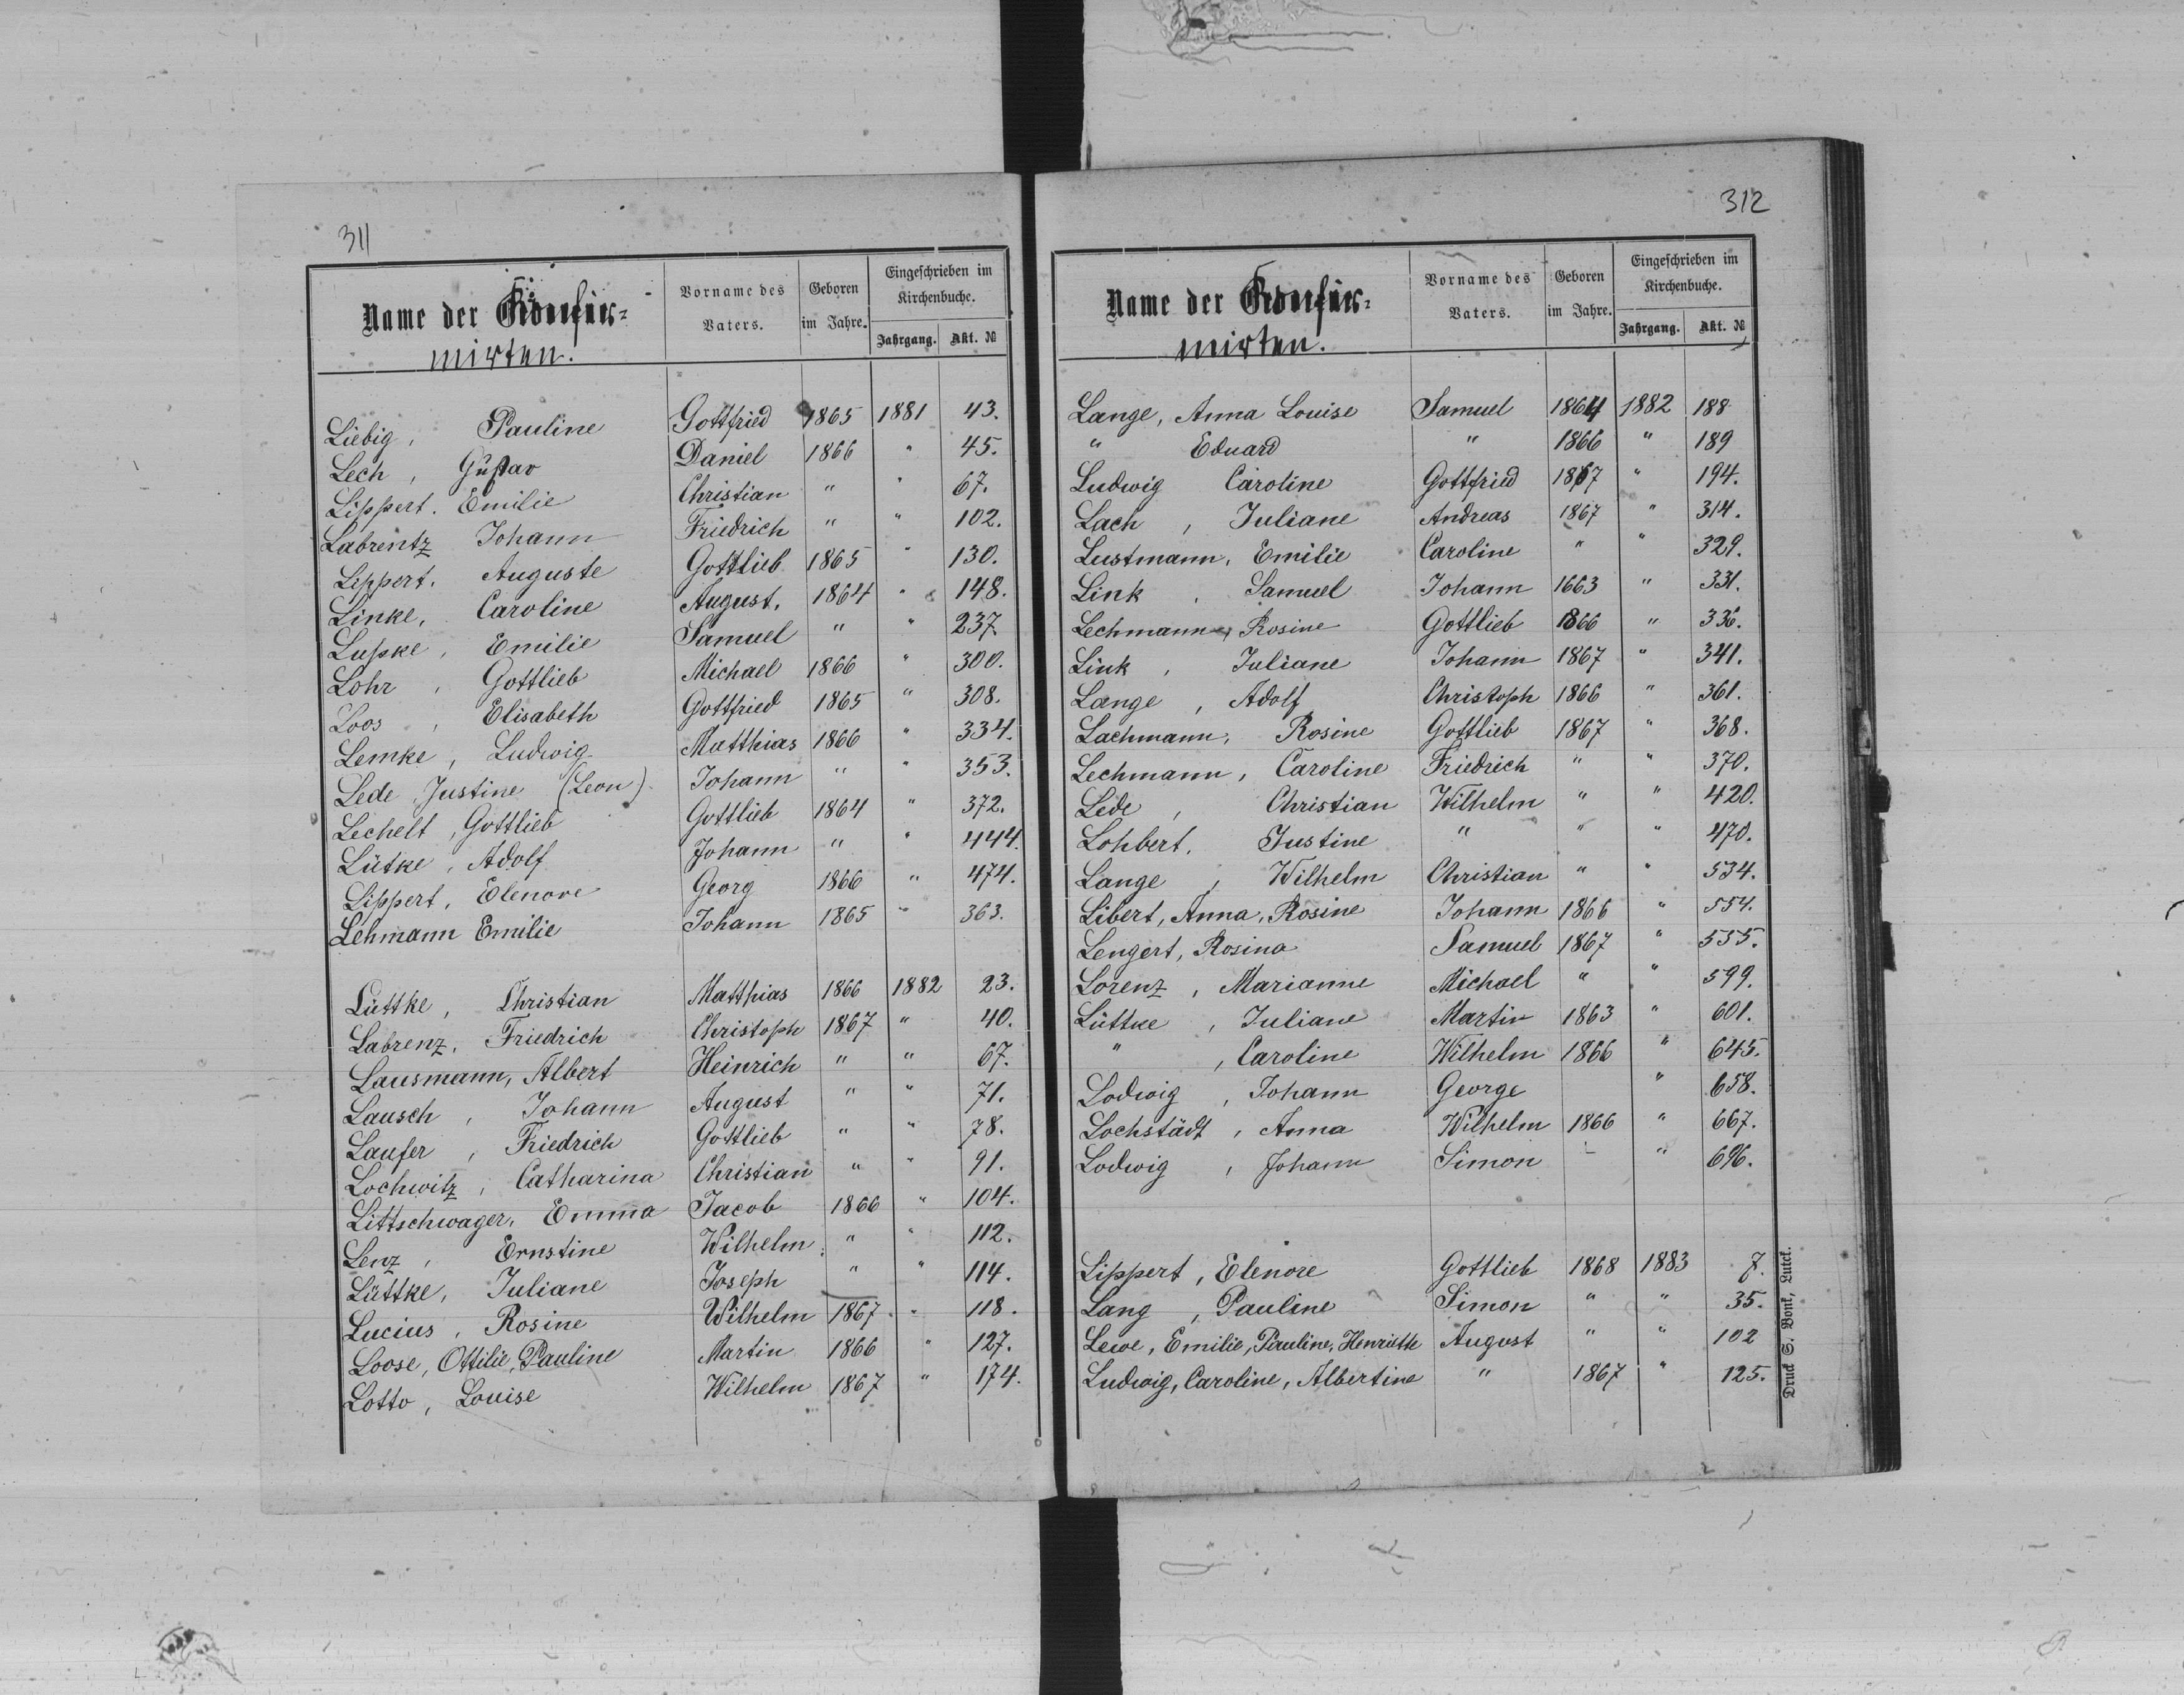 311
Name der Konfir-
mirten.
Vorname des
Vaters.
Geboren
im Jahre.
Eingeschrieben im
Kirchenbuche.
Jahrgang. Akt. №
Liebig, Pauline Gottfried 1865 1881 43.
Lech, Gustav Daniel 1866 " 45.
Lippert. Emilie Christian " " 67.
Labrentz Johann Friedrich " " 102.
Lippert. Auguste Gottlieb 1865 " 130.
Linke, Caroline August. 1864 " 148.
Lupke, Emilie Samuel " " 237.
Lohr, Gottlieb Michael 1866 " 300.
Loos, Elisabeth Gottfried 1865 " 308.
Lemke, Ludwig Matthias 1866 " 334.
Lede, Justine (Leon) Johann " " 353.
Lechelt, Gottlieb Gottlieb 1864 " 372.
Lütke, Adolf Johann " " 444.
Lippert, Elenore Georg 1866 " 474.
Lehmann Emilie Johann 1865 " 363.
Lüttke, Christian Matthias 1866 1882 23.
Labrenz, Friedrich Christoph 1867 " 40.
Lausmann, Albert Heinrich " " 67.
Lausch, Johann August " " 71.
Laufer, Friedrich Gottlieb " " 78.
Lochwitz, Catharina Christian " " 91.
Littschwager, Emma Jacob 1866 " 104.
Lenz, Ernstine Wilhelm " " 112.
Lüttke, Juliane Joseph " " 114.
Lucius, Rosine Wilhelm 1867 " 118.
Loose, Ottilie, Pauline Martin 1866 " 127.
Lotto, Louise Wilhelm 1867 " 174.
312
Name der Konfir-
mirten.
Vorname des
Vaters.
Geboren
im Jahre.
Eingeschrieben im
Kirchenbuche.
Jahrgang. Akt. №
Lange, Anna Louise Samuel 1864 1882 188
" Eduard " 1866 " 189
Ludwig Caroline Gottfried 1867 " 194.
Lach, Juliane Andreas 1867 " 314.
Lustmann, Emilie Caroline " " 329.
Link, Samuel Johann 1663 " 331.
Lechmann, Rosine Gottlieb 1866 " 336.
Link, Juliane Johann 1867 " 341.
Lange, Adolf Christoph 1866 " 361.
Lachmann, Rosine Gottlieb 1867 " 368.
Lechmann, Caroline Friedrich " " 370.
Lede, Christian Wilhelm " " 420.
Lohbert. Justine " " " 470.
Lange, Wilhelm Christian " " 534.
Libert, Anna, Rosine Johann 1866 " 554.
Lengert, Rosina Samuel 1867 " 555.
Lorenz, Marianne Michael " " 599.
Lüttke, Juliane Martin 1863 " 601.
", Caroline Wilhelm 1866 " 645.
Lodwig, Johann George " 658.
Lochstädt, Anna Wilhelm 1866 " 667.
Lodwig, Johann Simon - " 696.
Lippert, Elenore Gottlieb 1868 1883 7.
Lang, Pauline Simon " " 35.
Lewe, Emilie, Pauline, Henriette August " " 102
Ludwig, Caroline, Albertine " 1867 " 125.
Druck S. Bonk, Lutck.